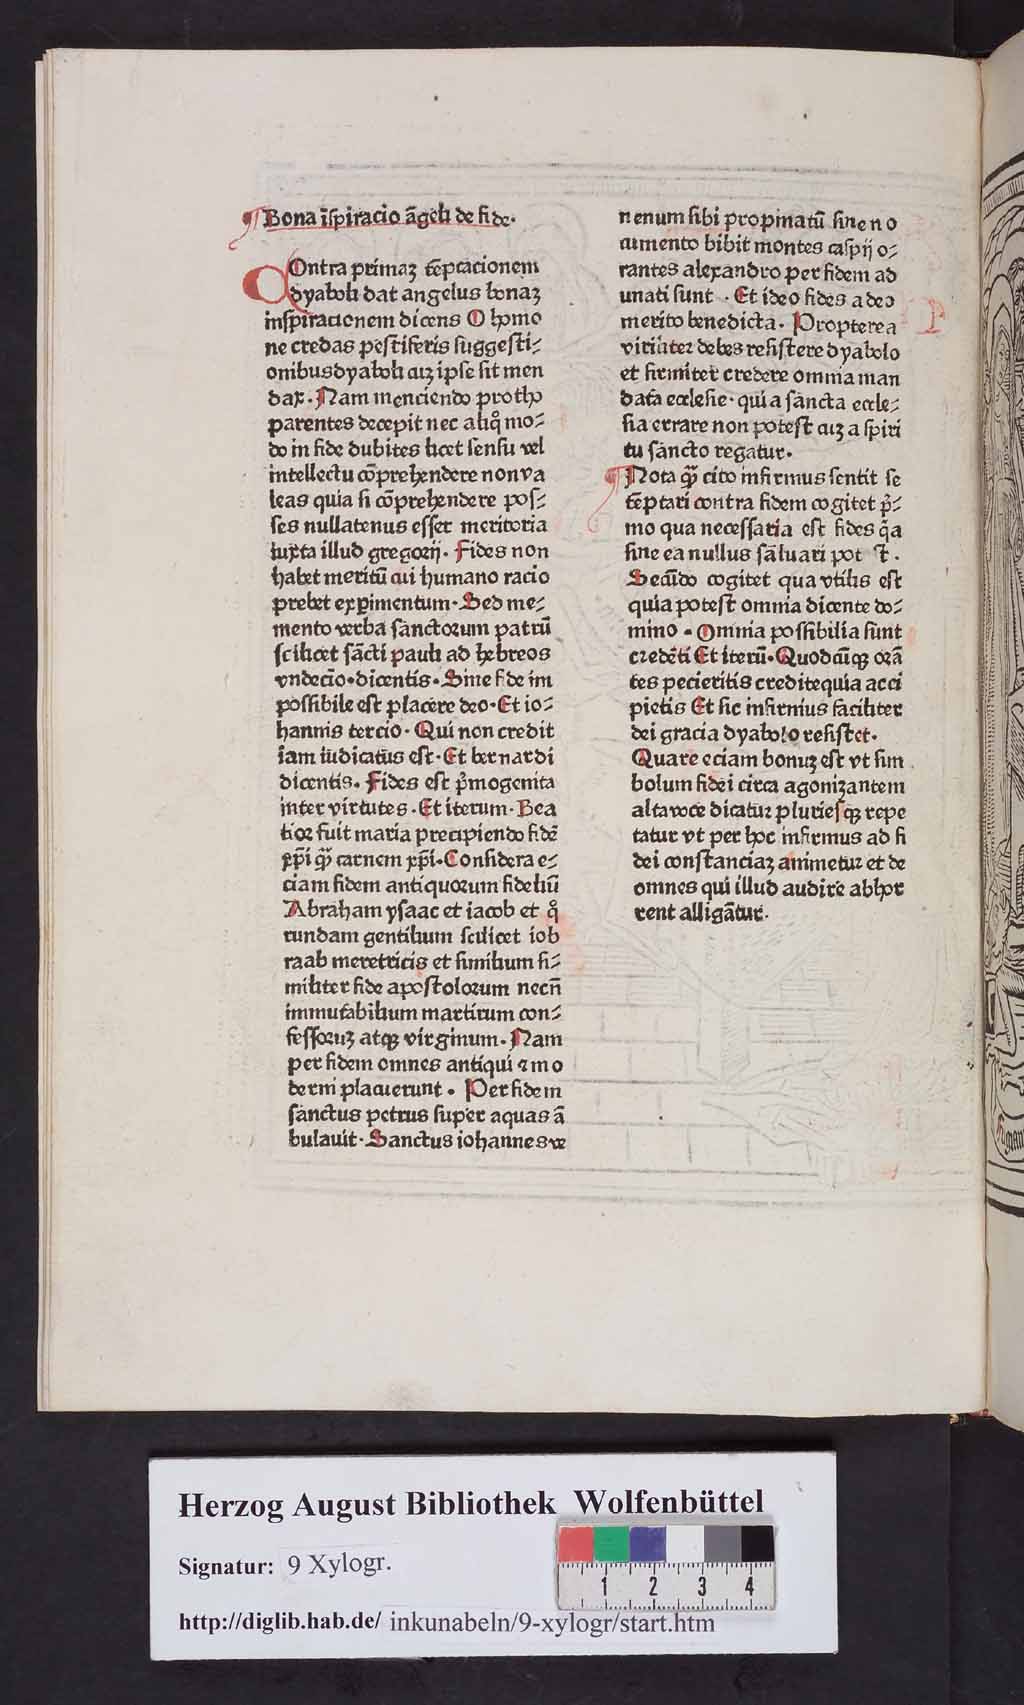 ¶ Bona ĩspiracio ãgeli de fide·
COntra primaȝ tẽptacionem
dyaboli dat angelus bonaȝ
inspiracionem dicens O homo
ne credas pestiferis suggesti⸗
onibus dyaboli cuȝ ipse sit men
dax· Nam menciendo protho
parentes decepit nec aliq̃ mo⸗
do in fide dubites licet sensu vel
intellectu cõprehendere non va
leas quia si cõprehendere pos⸗
ses nullatenus esset meritoria
iuxta illud gregorij· Fides non
habet meritũ cui humano racio
prebet experimentum· Sed me⸗
mento verba sanctorum patrũ
scilicet sãcti pauli ad hebreos
vndecio·dicentis· Sine fide im
possibile est placere deo· Et io⸗
hannis tercio· Qui non credit
iam iudicatus est· Et bernardi
dicentis· Fides est p̃mogenita
inter virtutes· Et iterum· Bea
tior fuit maria precipiendo fidẽ
xp̃i q̃ȝ carnem xp̃i· Considera e⸗
ciam fidem antiquorum fideliũ
Abraham ysaac et iacob et q̊
rundam gentilium scilicet iob
raab meretricis et similium si⸗
militer fide apostolorum necñ
immutabilium martirum con⸗
fessoruȝ atqȝ virginum· Nam
per fidem omnes antiqui ⁊ mo
derni placuerunt· Per fidem
sanctus petrus super aquas ã
bulauit· Sanctus iohannes ve
nenum sibi propinatũ sine no
cumento bibit montes caspij o⸗
rantes alexandro per fidem ad
unati sunt · Et ideo fides a deo
merito benedicta· Propterea
viriliter debes resistere dyabolo
et firmiter credere omnia man
data ecclesie· quia sancta eccle⸗
sia errare non potest cuȝ a spiri
tu sancto regatur·
¶ Nota q̃ȝ cito infirmus sentit se
tẽptari contra fidem cogitet p̃⸗
mo qua necessaria est fides q̃a
sine ea nullus saluari pot ⁊̃.
Secũdo cogitet qua vtilis est
quia potest omnia dicente do⸗
mino · Omnia possibilia sunt
credẽti Et iterũ· Quodcũqȝ orã
tes pecieritis credite quia acci
pietis Et sic infirmus faciliter
dei gracia dyabolo resistet·
Quare eciam bonuȝ est vt sim
bolum fidei circa agonizantem
alta voce dicatur pluriesqȝ repe
tatur vt per hoc infirmus ad fi
dei constanciaȝ animetur et de
omnes qui illud audire abhor
rent alligãtur·
P
Herzog August Bibliothek Wolfenbüttel
Signatur: 9 Xylogr.
http://diglib.hab.de/ inkunabeln/9-xylogr/start.htm
1 2 3 4